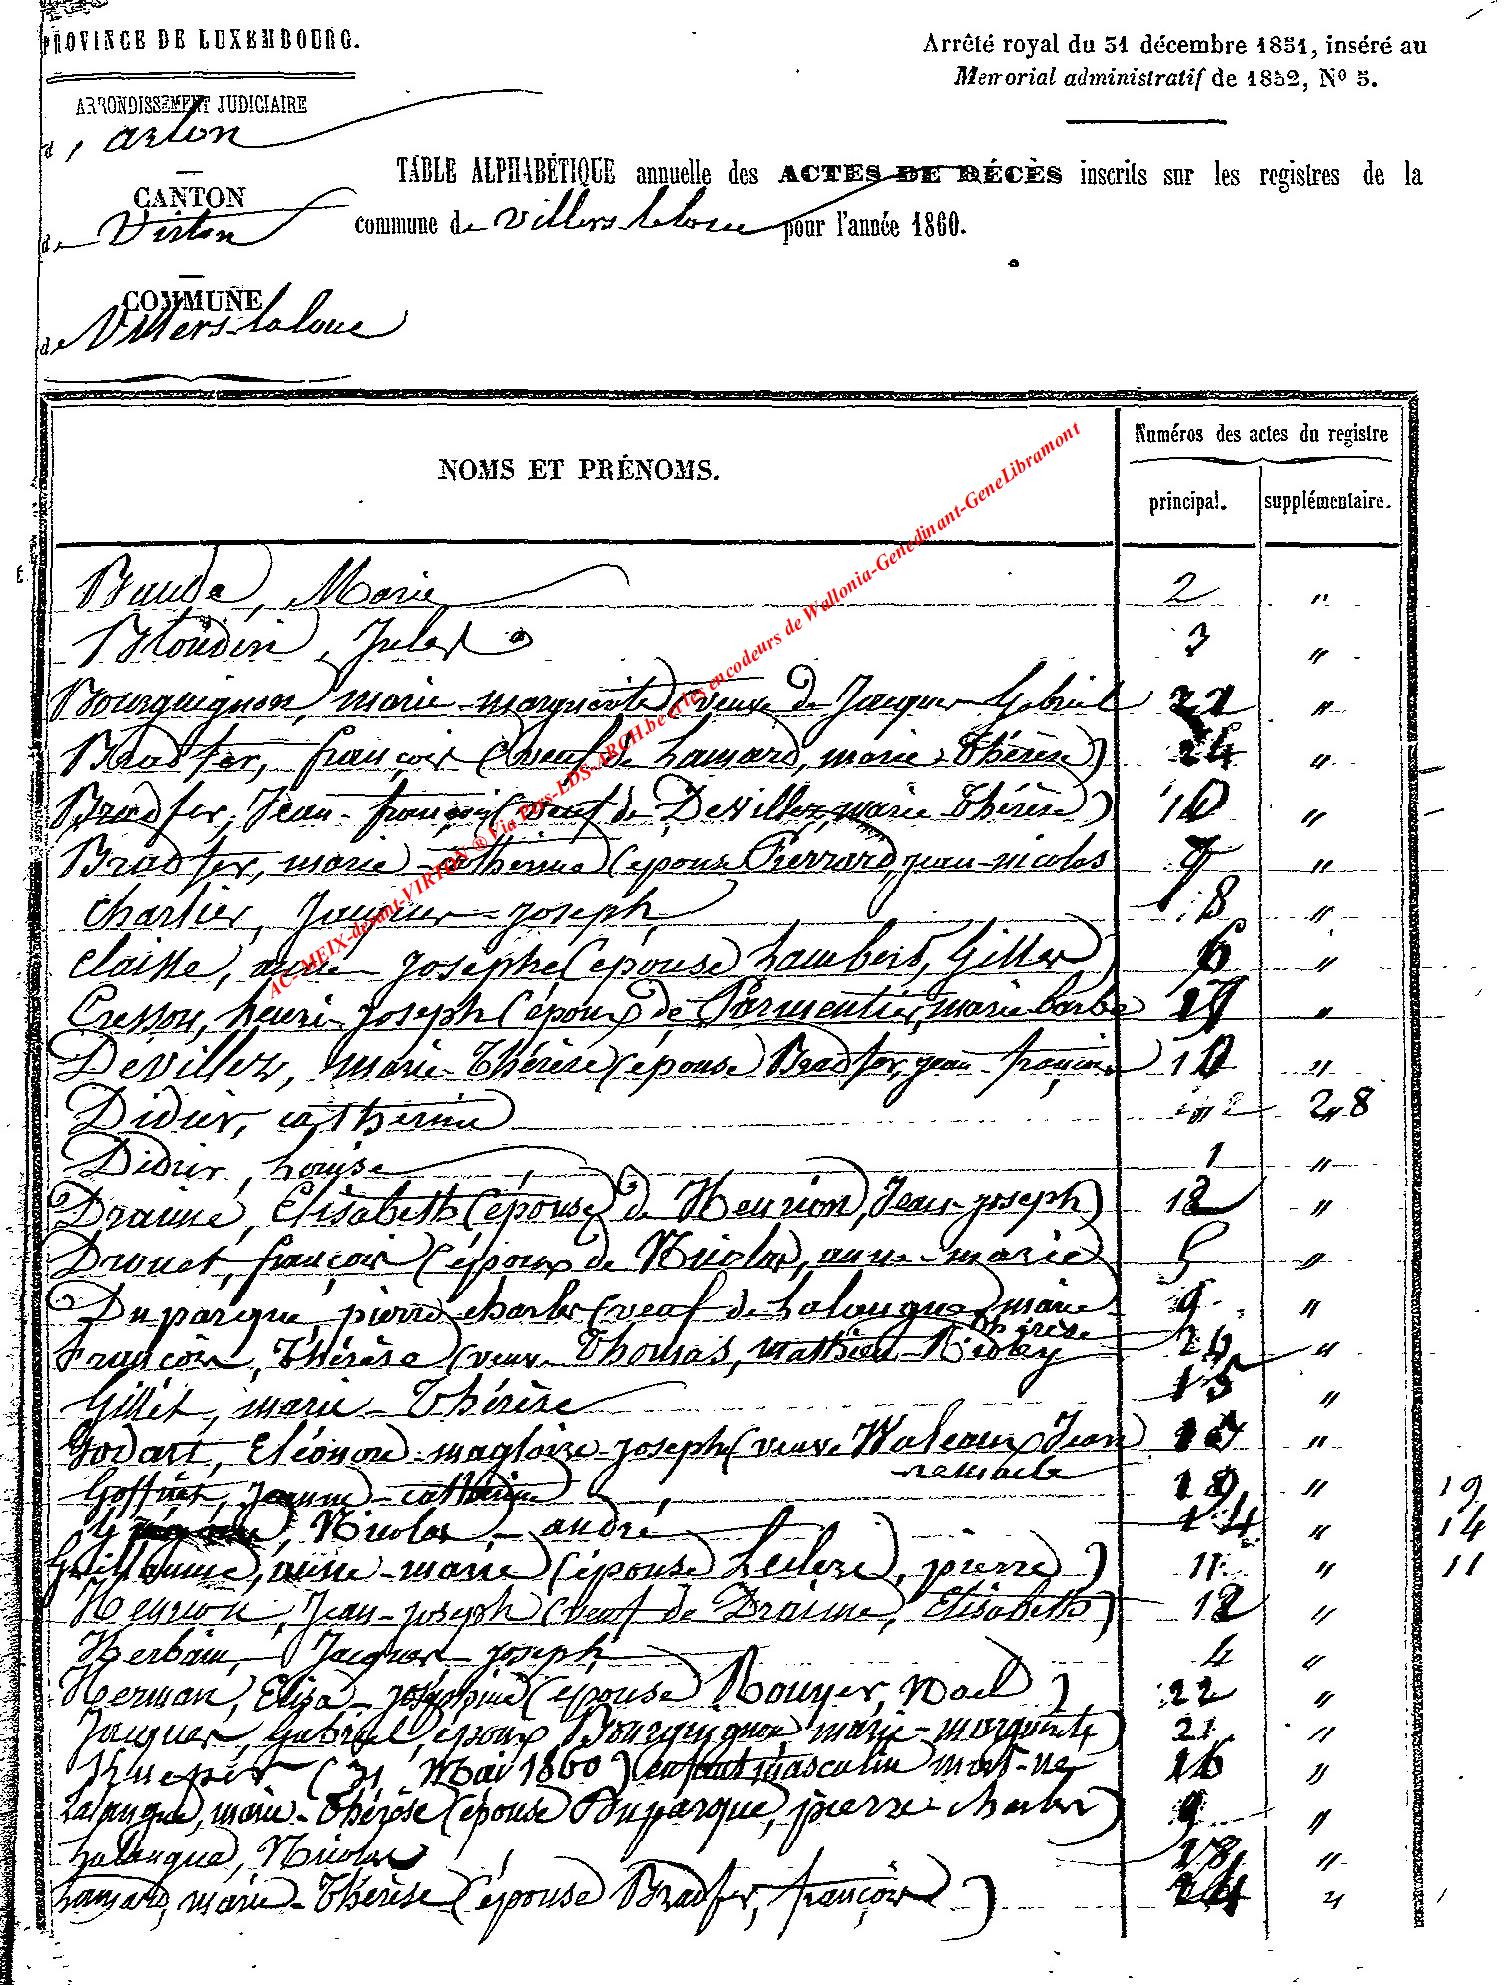 PROVINCE DE LUXEMBOURG.
Arrêté royal du 31 décembre 1851, inséré au
Memorial administratif de 1852, No 5.
ARRONDISSEMENT JUDICIAIRE
d'arlon
TABLE ALPHABÉTIQUE annuelle des ACTES DE DÉCÈS inscrits sur les registres de la
CANTON
de Virton
commune de Villers-laloue pour l'année 1860.
COMMUNE
de Villers-laloue
NOMS ET PRÉNOMS.
Numéros des actes du registre
principal. supplémentaire.
Bauda, Marie 2 "
Blondin, Jules 3 "
Bourguignon, marie-marguerite veuve de Jacques Gabriel 21 "
Bradfer, françois (veuf de Lamard, marie-Thérèse) 24 "
Bradfer, Jean-françois (veuf de Devillez, marie Thérèse) 10 "
Bradfer, marie-catherine (épouse Pierrard, jean-nicolas 7 "
Charlier, Jacques-joseph 8 "
Claisse, anne-josephe (épouse Lambert, Gilles) 6 "
Cresson, henri-joseph (époux de Parmentier, marie barbe 17 "
Devillez, marie-Thérèse (épouse Bradfer, jean-françois) 10 "
Didier, catherine " 28
Didier, Louise 1 "
Draime, Elisabeth (épouse de Henrion, Jean-joseph) 12 "
Drouet, françois (époux de Nicolas, anne-marie) 5 "
Duparque, pierre-charles (veuf de Lalangue, marie- 9 "
thérèse
François, Thérèse (veuve Thomas, mathieu-Nicolas "
Gillet, marie-Thérèse 15 "
Godart, Eléonore-magloire-joseph (veuve Waleaux, Jean "
remacle
Goffinet, jeanne-catherine 19 " 19
Nicolas-andré 14 " 14
Guillaume, anne-marie (épouse Leclere, pierre) 11 " 11
Henrion, Jean-joseph (veuf de Draime, Elisabeth) 12 "
Herbain, Jacques-joseph 4 "
Herman, Elisa-joséphine (épouse Rouyer, Noel) 22 "
Jacques, Gabriel, époux Bourguignon, marie-marguerite) 21 "
Knepper (31 Mai 1860) enfant masculin mort-né 16 "
Lalangue, marie-Thérèse (épouse Duparque, pierre-charles) 9 "
Lalangue, Nicolas 18 "
Lamard, marie-Thérèse (épouse Bradfer, françois) 24 "
AC-MEIX-devant-VIRTON ® Via Prvs-LDS-ARCH.be et les encodeurs de Wallonia-Genedinant-GeneLibramont